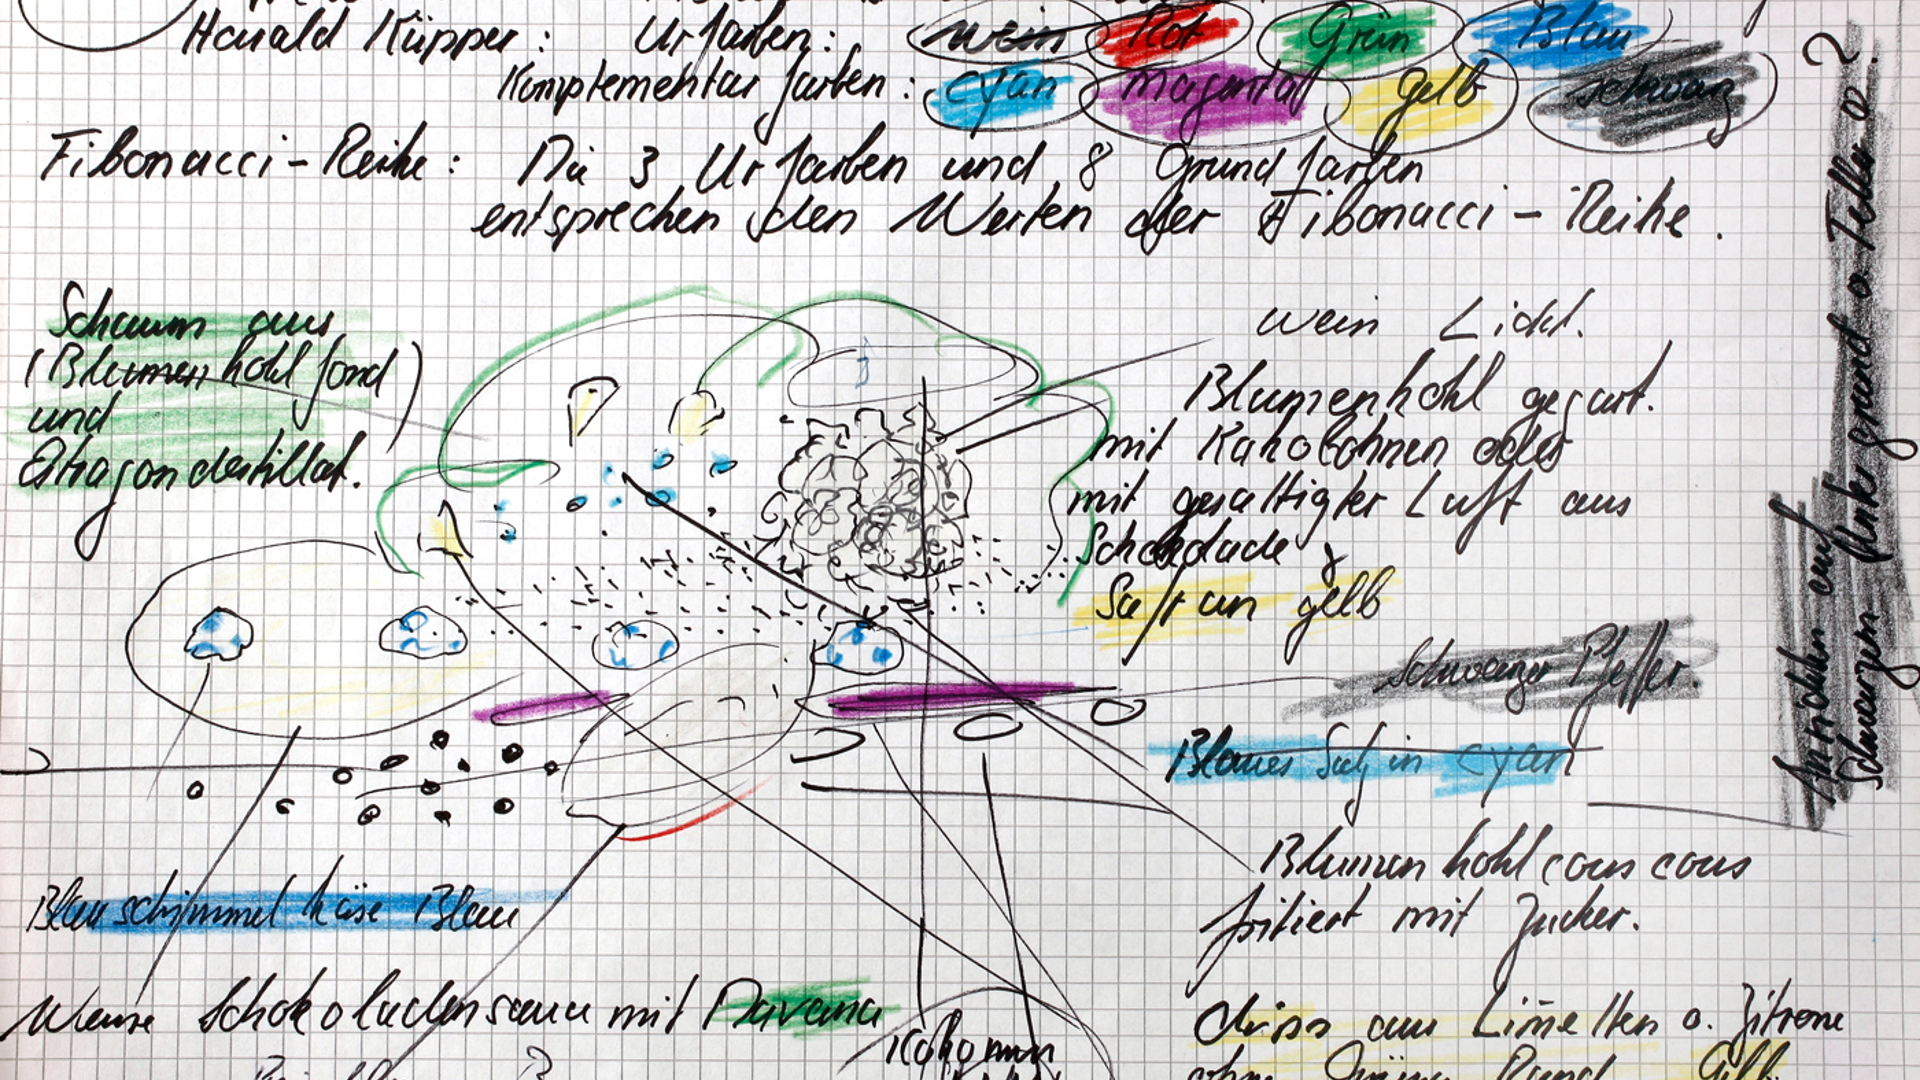 Harald Küpper : Urfarben : weiß Rot Grün Blau
Komplementar farben : cyan magenta gelb schwarz
Fibonacci-Reihe : Die 3 Urfarben und 8 Grundfarben
entsprechen den Werten der Fibonacci-Reihe .
Schaum aus
(Blumenkohlfond)
und
Estragondestillat.
weiß Licht.
Blumenkohl gegart.
mit Kakaobohnen oder
mit gesättigter Luft aus
Schokolade
Safran gelb
Schwarzer Pfeffer.
Blaues Salz in cyan
Blumenkohl cous cous
fritiert mit Zucker.
Blauschimmelkäse Blau
Weisse Schokoladensauce mit Davana
aus Limetten o. Zitrone
ohne Grünen Rand Gelb
Anrichten auf
schwarzem Untergrund o. Teller o ?